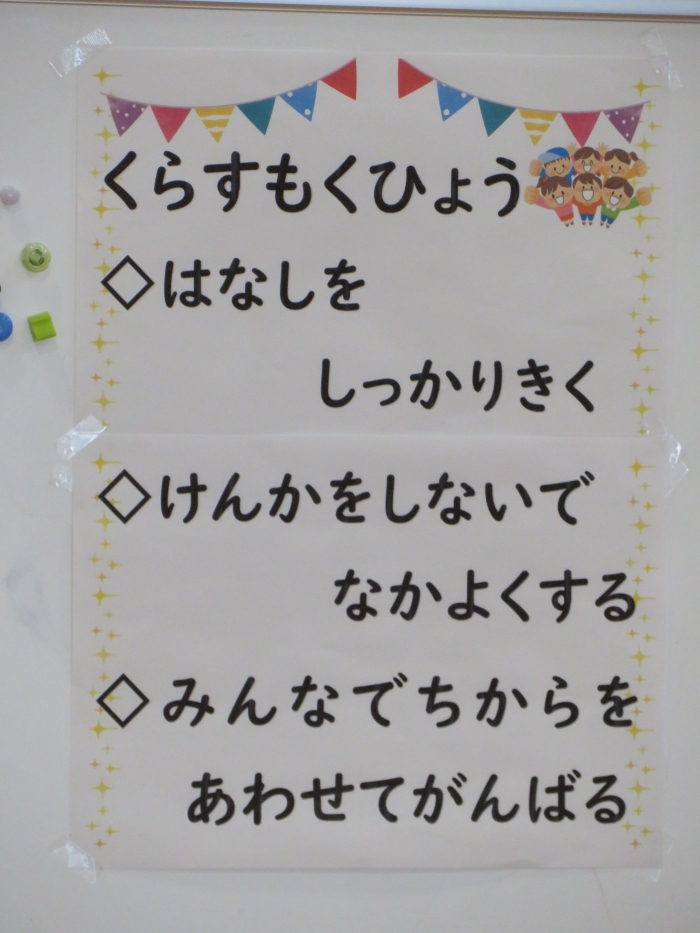 くらすもくひょう
◇はなしを
しっかりきく
◇けんかをしないで
なかよくする
◇みんなでちからを
あわせてがんばる